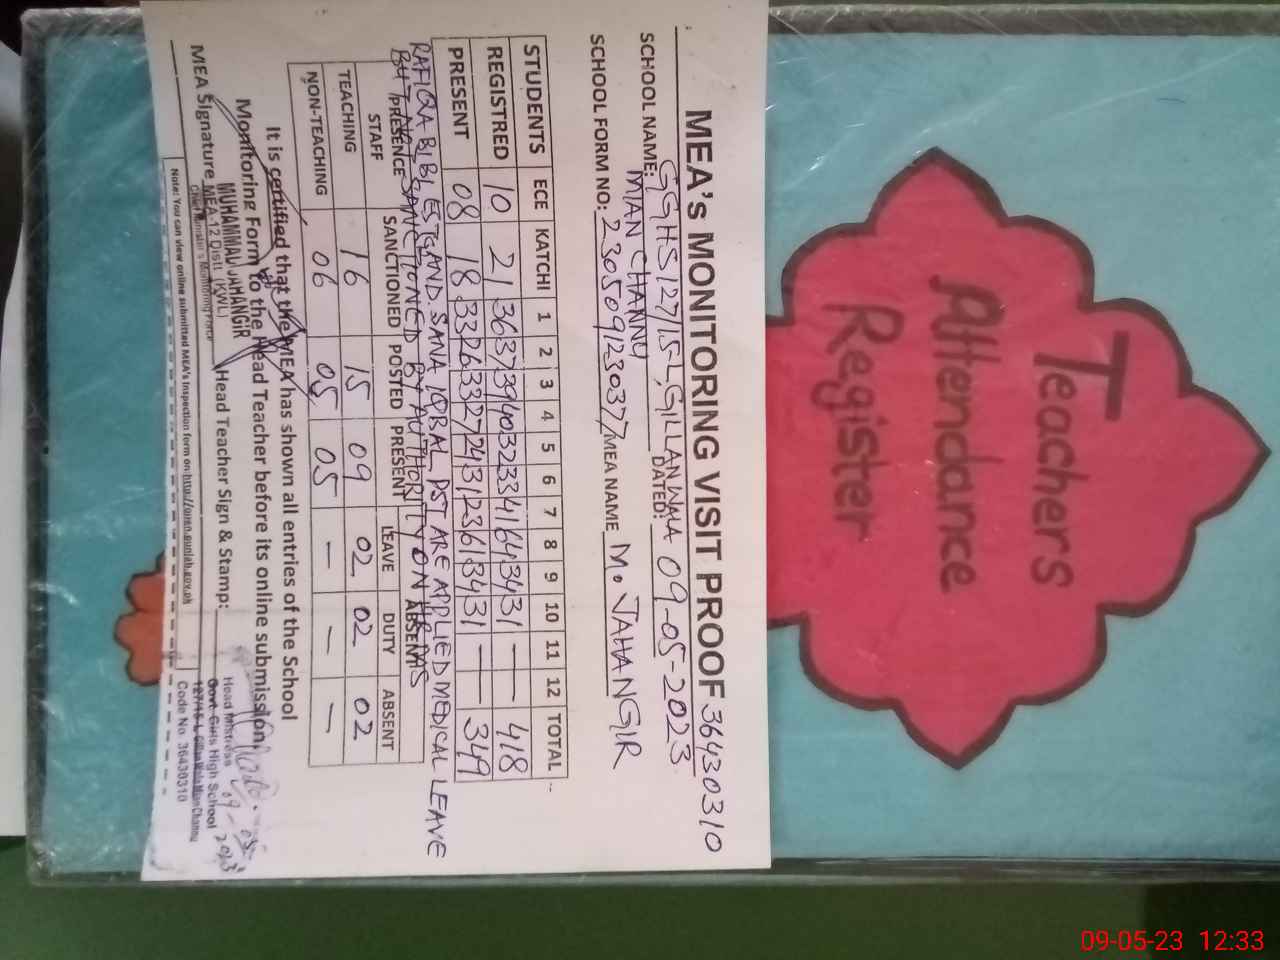 Teachers
Attendance
Register
MEA's MONITORING VISIT PROOF 36430310
SCHOOL NAME: GGHS 127/15-L, GILLANWALA DATED: 09-05-2023
MIAN CHANNU
SCHOOL FORM NO: 2305091230377 MEA NAME M. JAHANGIR
STUDENTS ECE KATCHI 1 2 3 4 5 6 7 8 9 10 11 12 TOTAL
REGISTRED 10 21 36 37 39 40 32 33 41 64 34 31 — — 418
PRESENT 08 18 33 26 33 27 24 31 23 61 34 31 — — 349
RAFIQA BIBI, EST, AND SANA IQBAL, PST ARE APPLIED MEDICAL LEAVE
BUT NOT SANCTIONED BY AUTHORITY ON HRMS
STAFF PRESENCE SANCTIONED POSTED PRESENT ABSENT
LEAVE DUTY ABSENT
TEACHING 16 15 09 02 02 02
NON-TEACHING 06 05 05 — — —
It is certified that the MEA has shown all entries of the School
Monitoring Form to the Head Teacher before its online submission.
MUHAMMAD JAHANGIR
MEA-12 Distt. (KWL)
Chief Minister's Monitoring Force
MEA Signature Head Teacher Sign & Stamp:
09-05-2023
Head Mistress
Govt. Girls High School
127/15-L Gillan Wala Mian Channu
Code No. 36430310
Note: You can view online submitted MEA's Inspection form on http://open.punjab.gov.pk
09-05-23 12:33